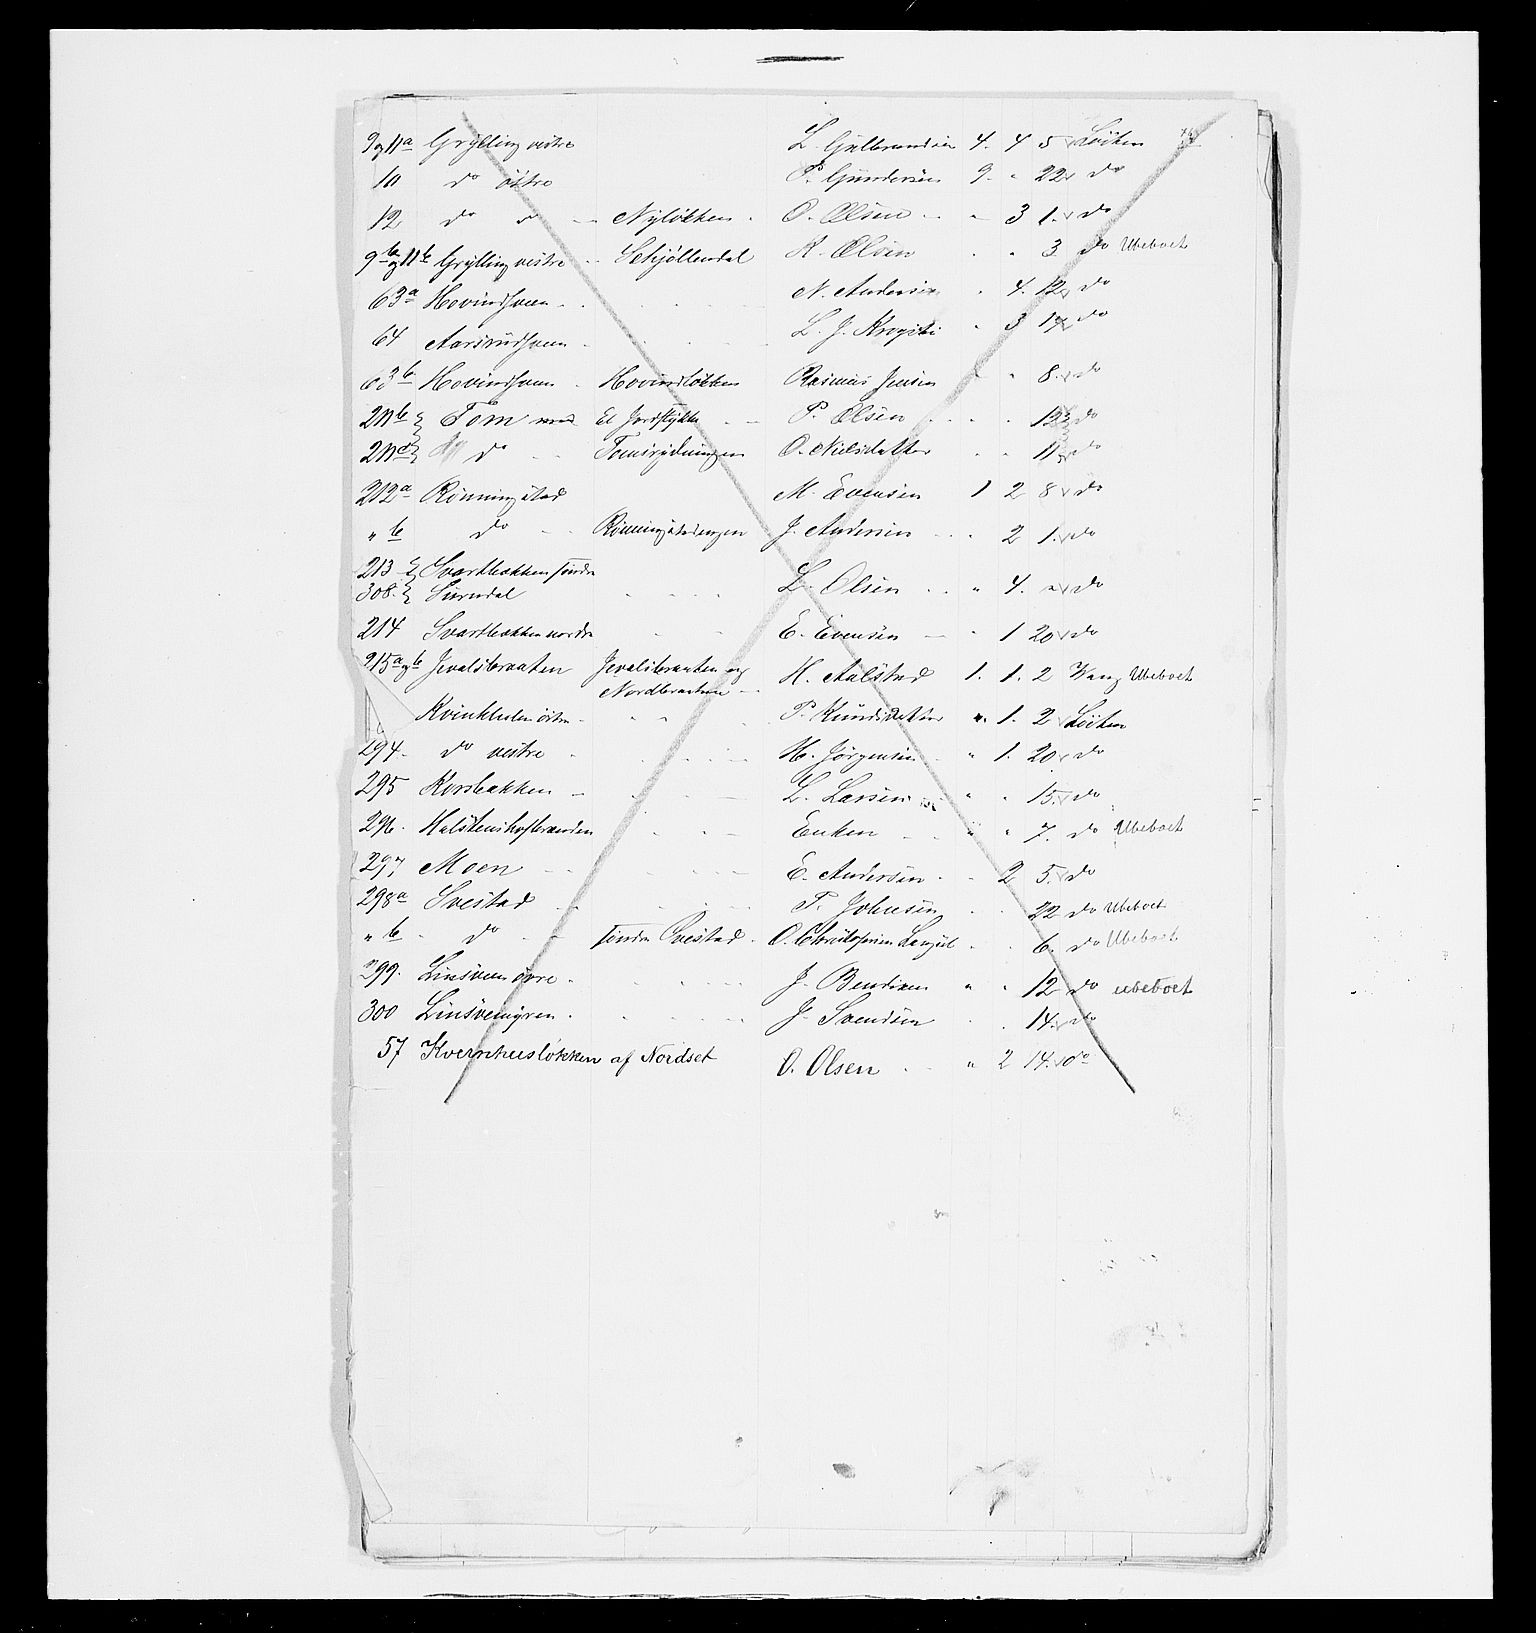 9 og 11a Grylling vestre L. Gulbrandsen 4. 4 5 Löiten
10 do östre P. Gundersen 9. " 22 do
12 do do Nylökken O. Olsen " 3 1. do
9b og 11b Grylling vestre Schjöllendal K. Olsen " " 3 do Ubeboet
63a Hovindsveen N. Andersen " 4. 12 do
64 Aarsrudsveen L. J. " 3 17 do
63b Hovindsveen Hovindlökken Rasmus Jensen " " 8. do
211b Tom med Et Jordstykke P. Olsen 12 do
211c do O. Nielsdatter 11 do
212a Rönningstad M. Evensen 1 2 8 do
" b do Rönningstadengen J. Andersen 2 1. do
213 Svartbækken söndre
308. Surndal L. Olsen " 4. " do
214 Svartbækken nordre E. Evensen " 1 20 do
215a og b Jevalsbraaten Jevalsbraaten og H. Aalstad 1. 1. 2 Vang Ubeboet
Nordbraaten
Kvinklulen östre P. Knudsdatter " 1. 2 Löiten
294. do vestre H. Jörgensen " 1. 20 do
295 Korsbakken L. Larsen " " 15. do
296. Enken " " 7. do Ubeboet
297 Moen E. Andersen 2 5. do
298a Svestad T. Johnsen 22 do Ubeboet
" b do söndre Svestad O. Christofersen 6. do Ubeboet
299. Linsveen övre J. Bendixen " " 12 do ubeboet
300 Linsveengren J. Svendsen 14. do
57 Kvernhuslökken af Nordset O. Olsen " 2 14. do